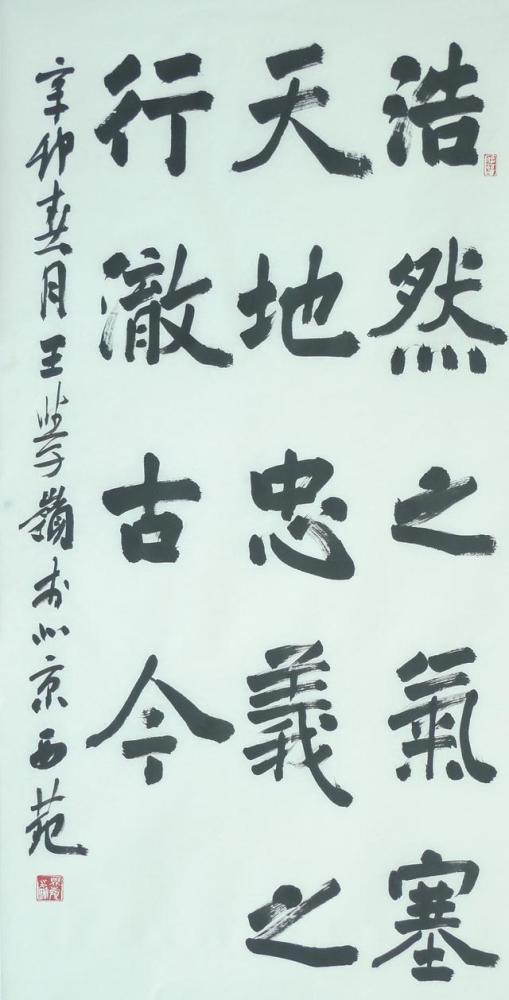 浩然之氣塞
天地忠義之
行澈古今
辛卯春月王学嶺书北京西苑